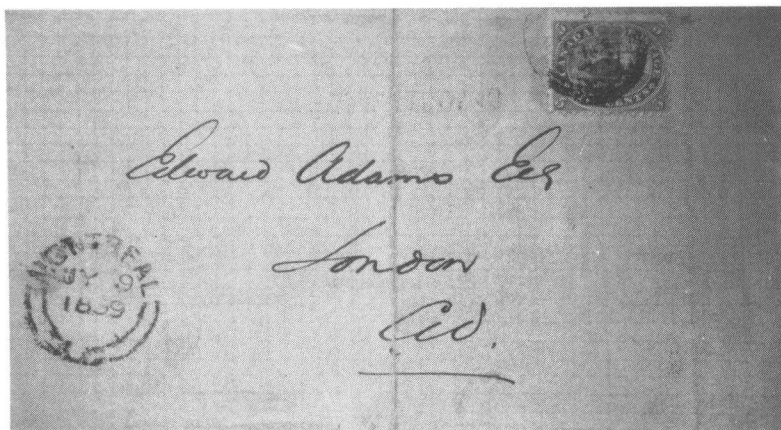 Edward Adams Esq
London
C.W.
MONTREAL
JY 9
1859